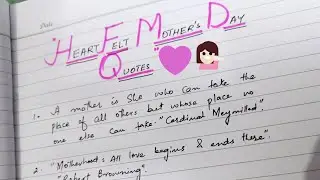 Date
"HEART FELT MOTHER'S DAY
QUOTES"
1. A mother is She who can take the
place of all others but whose place no
one else can take. "Cardinal Meymillod".
2. "Motherhood: All love begins & ends there".
"Robert Browning".